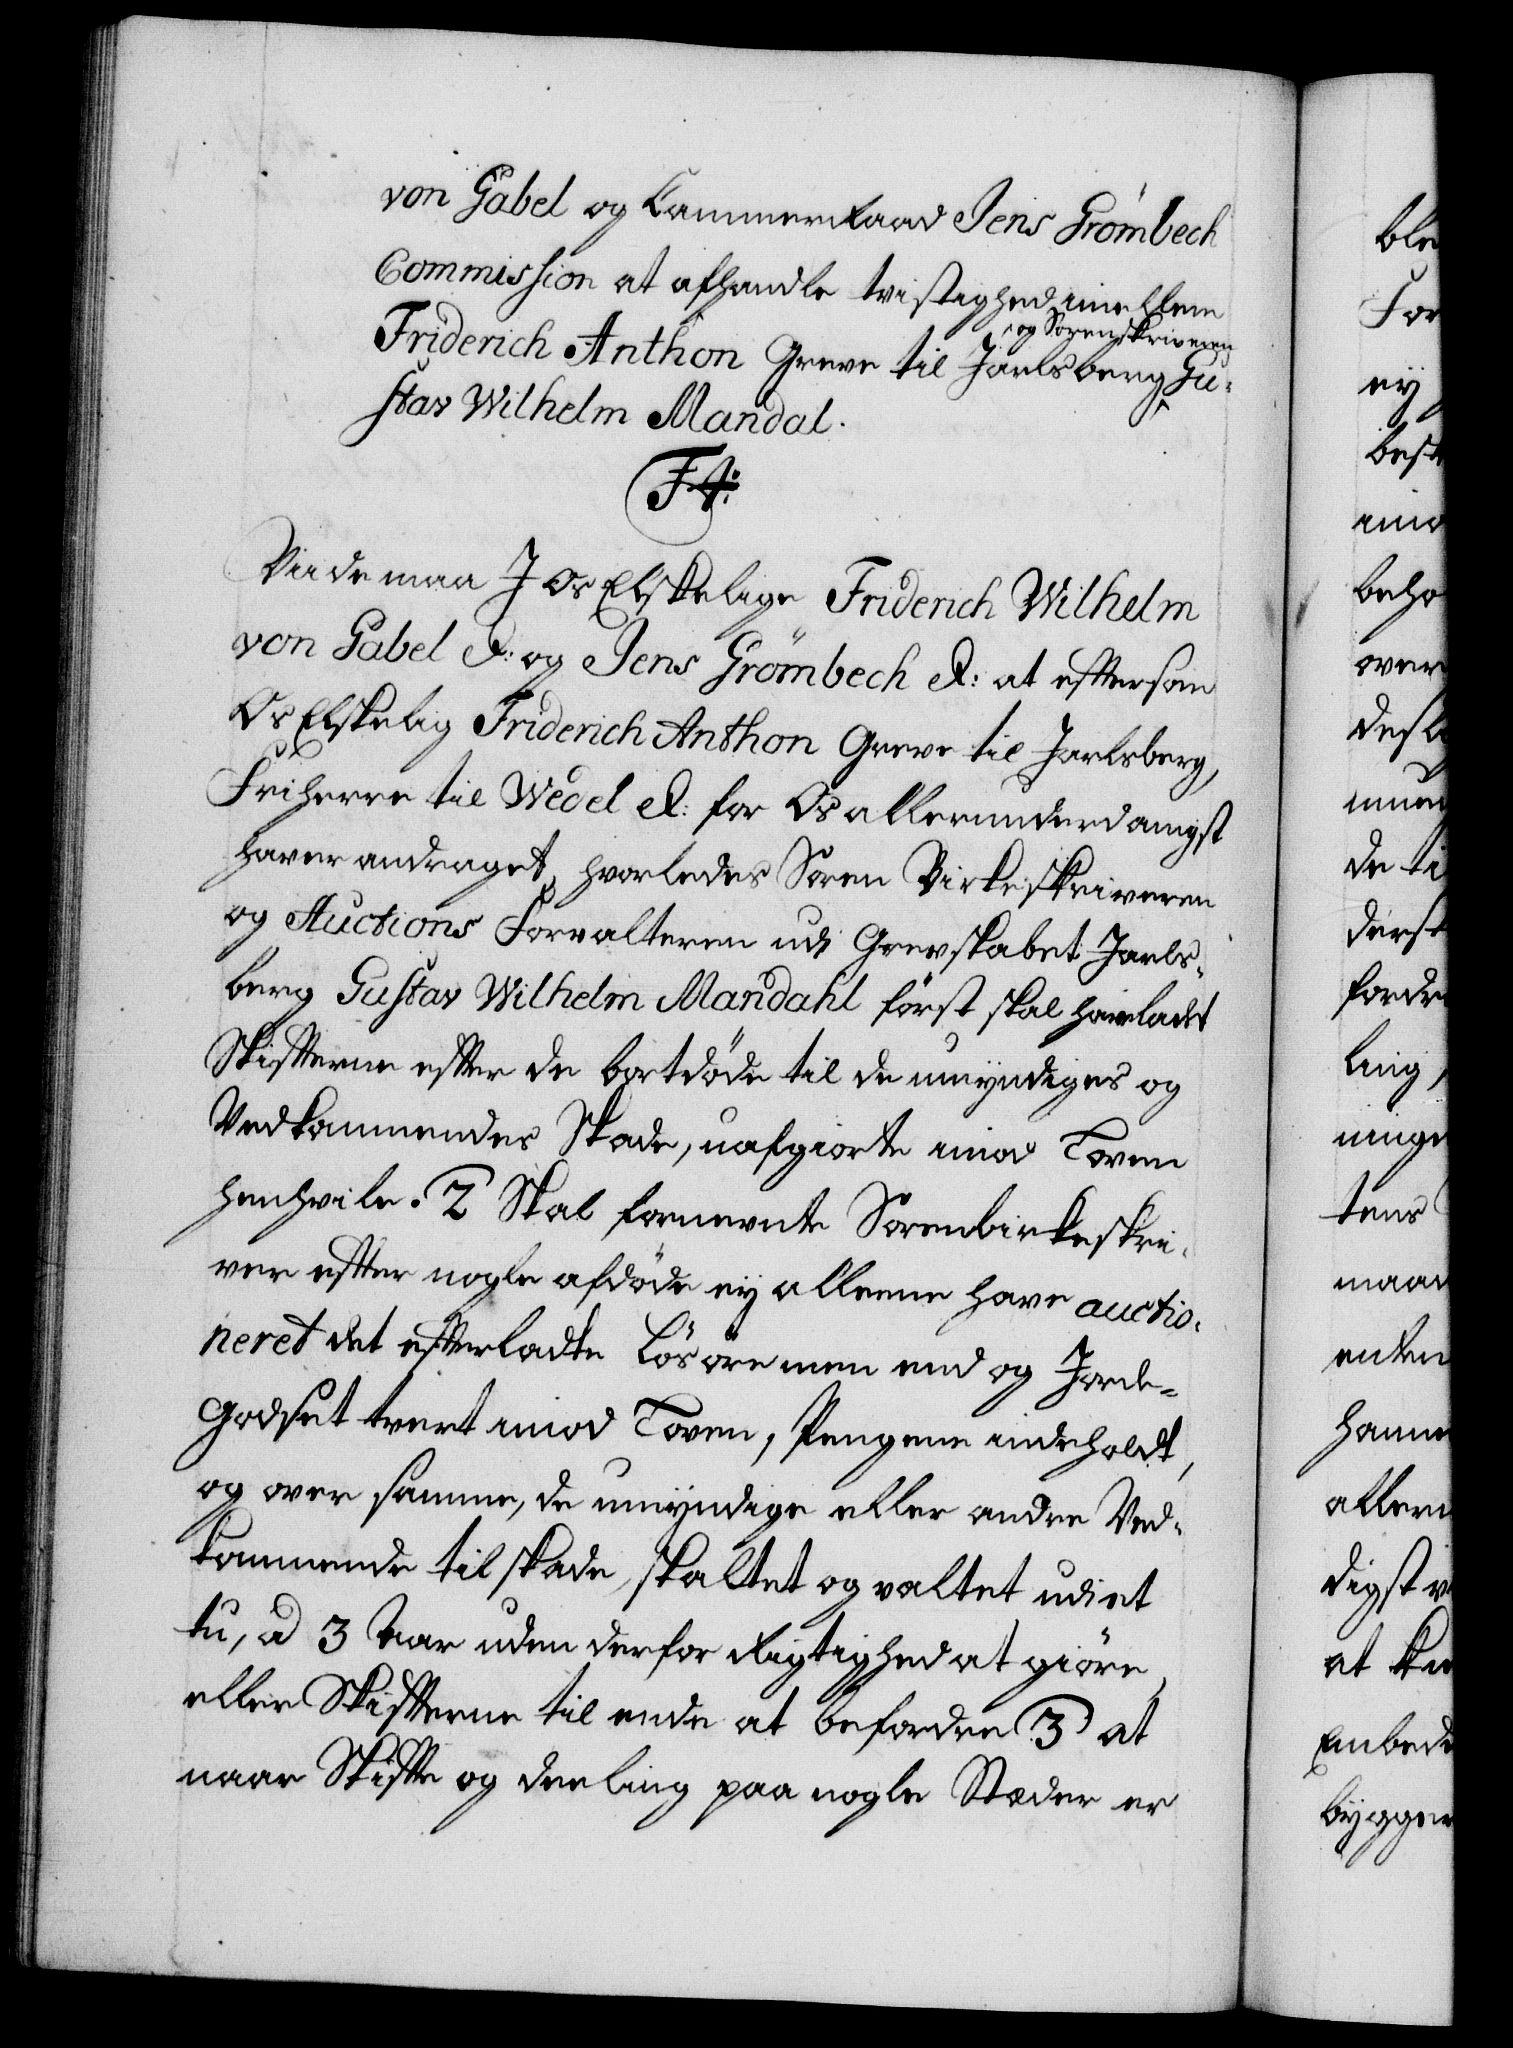 von Gabel og Cammerraad Jens Grömbech
Commission at afhandle tvistighed imellem
Friderich Anthon Greve til Jarlsberg og Sorenskriveren Gu-
stav Wilhelm Mandal.
F4:
Viide maa I Os Elskelige Friderich Wilhelm
von Gabel &: og Jens Grömbech &: at eftersom
Os Elskelig Friderich Anthon Greve til Jarlsberg,
Friherre til Wedel &: for Os allerunderdanigst
haver andraget, hvorledes Soren Birkeskriveren
og Auctions Forvalteren udi Grevskabet Jarls-
berg Gustav Wilhelm Mandahl först skal have ladet
Skifterne efter de bortdöde til de umyndiges og
Vedkommendes Skade, uafgiorte imod Loven
henhvile. 2 Skal fornevnte Sorenbirkeskri-
ver efter nogle afdöde ey alleene have auctio-
neret det efterladte Lösöre men end og Jorde-
Godset tvert imod Loven, Pengene indeholdt,
og over samme, de umyndige eller andre Ved-
kommende til skade, skaltet og valtet udi et
tu, a 3 Aar uden derfor Rigtighed at giöre,
eller Skifterne til ende at befordre 3 at
naar Skifte og deeling paa nogle Stæder er
ble
For
ey
best
imo
beho
over
desl
de ti
derst
fordr
ling,
ninge
tens
maa
enten
hanne
allern
digst v
at ku
Embed
bygger